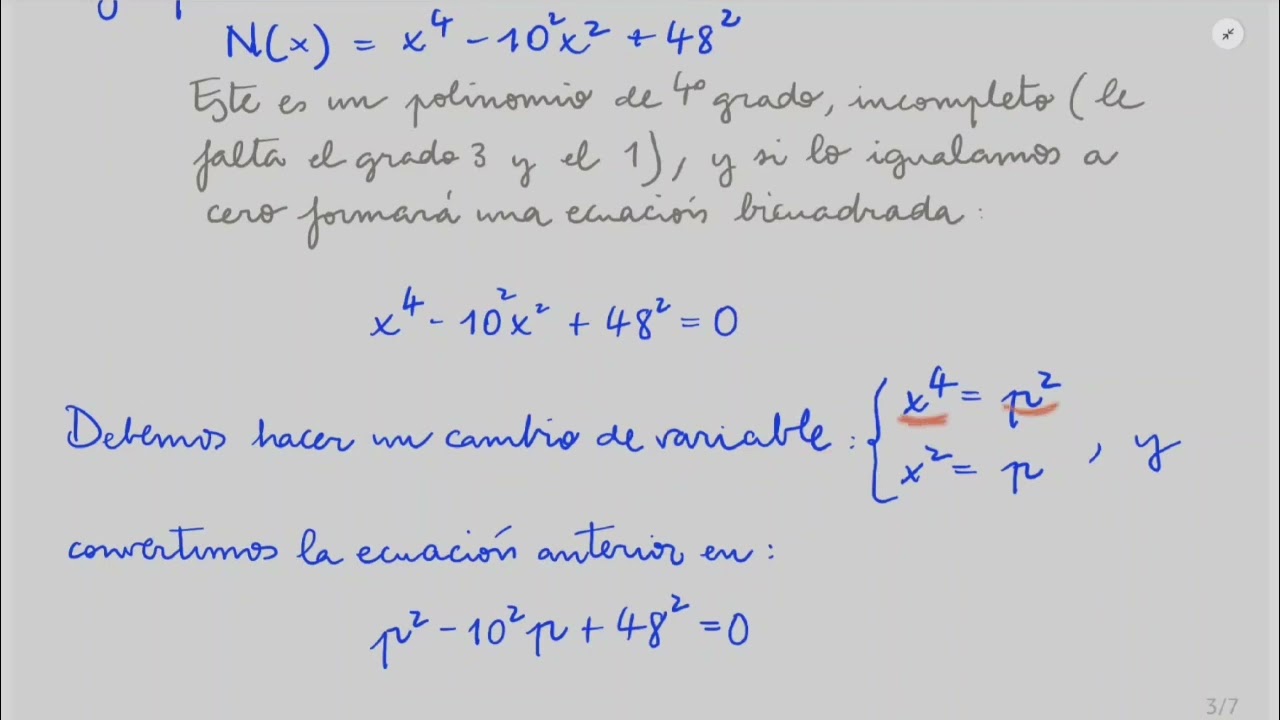 N(x) = x⁴ - 10²x² + 48²
Este es un polinomio de 4º grado, incompleto (le
falta el grado 3 y el 1), y si lo igualamos a
cero formará una ecuación bicuadrada:
x⁴ - 10²x² + 48² = 0
Debemos hacer un cambio de variable: { x⁴ = p², x² = p , y
convertimos la ecuación anterior en:
p² - 10²p + 48² = 0
3/7